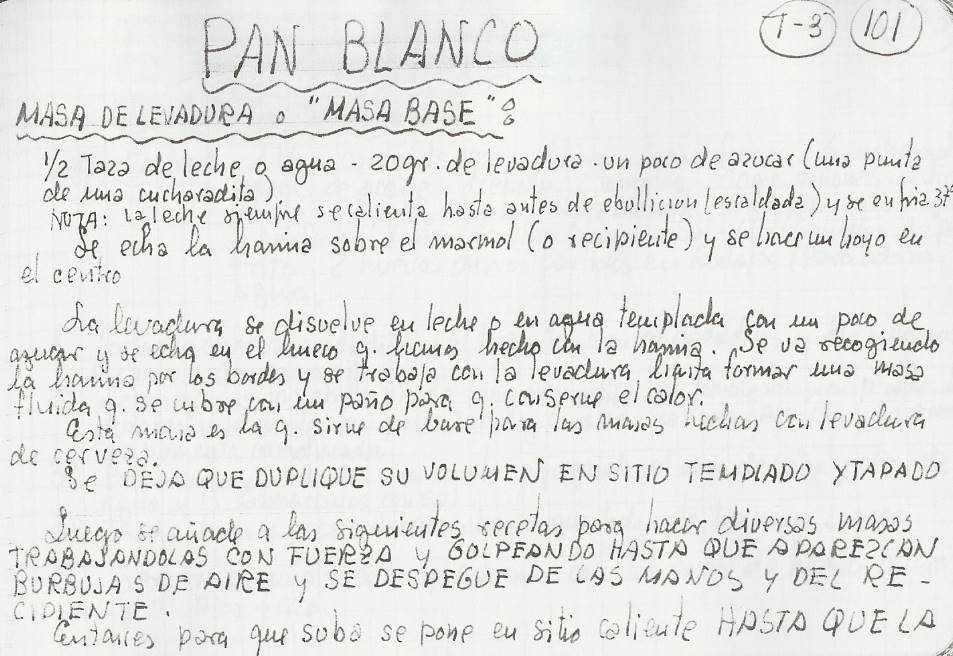 T-3 101
PAN BLANCO
MASA DE LEVADURA o "MASA BASE":
1/2 Taza de leche o agua - 20gr. de levadura - un poco de azucar (una punta
de una cucharadita)
NOTA: La leche siempre se calienta hasta antes de ebullicion (escaldada) y se enfria 37º
Se echa la harina sobre el marmol (o recipiente) y se hace un hoyo en
el centro
La levadura se disuelve en leche o en agua templada con un poco de
azucar y se echa en el hueco q. hemos hecho con la harina. Se va recogiendo
la harina por los bordes y se trabaja con la levadura hasta formar una masa
fluida q. se cubre con un paño para q. conserve el calor.
Esta masa es la q. sirve de base para las masas hechas con levadura
de cerveza.
Se DEJA QUE DUPLIQUE SU VOLUMEN EN SITIO TEMPLADO Y TAPADO
Luego se añade a las siguientes recetas para hacer diversas masas
TRABAJANDOLAS CON FUERZA y GOLPEANDO HASTA QUE APAREZCAN
BURBUJAS DE AIRE y SE DESPEGUE DE LAS MANOS y DEL RE-
CIPIENTE.
Entonces para que suba se pone en sitio caliente HASTA QUE LA